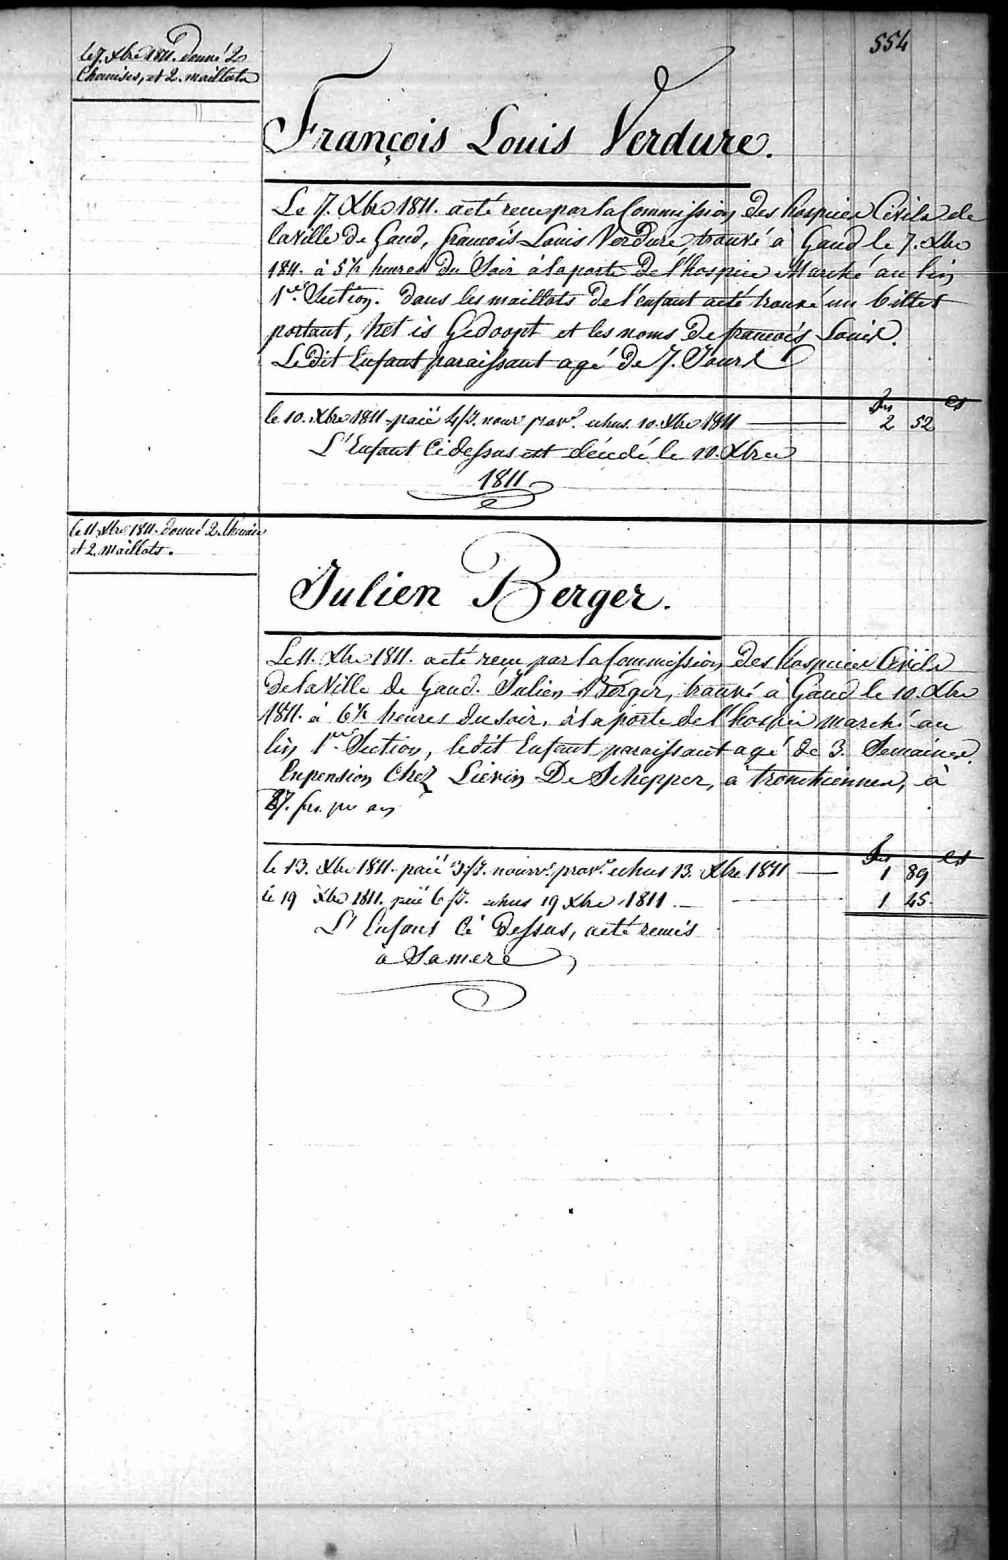 554
le 7. Xbre 1811. donné 2
Chemises, et 2. maillots
François Louis Verdure.
Le 7. Xbre 1811. a eté recu par la Commission des hospices Civils de
la Ville de Gand, francois Louis Verdure, trouvé à Gand le 7. Xbre
1811. à 5½ heures du Soir à la porte de l'hospice Marché au lin
1re. Section. dans les maillots de l'enfant a eté trouvé un billet
portant, het is Gedoopt et les noms de francois Louis.
Ledit Enfant paraissant agé de 7. Jours
frs cs
le 10. Xbre 1811 paié 4/7. nour prov.e echus. 10. Xbre 1811 2 52
L'Enfant Ci dessus est décédé le 10. Xbre
1811.
le 11 Xbre 1811. donné 2. Chemises
et 2. maillots.
Julien Berger.
Le 11. Xbre 1811. a eté reçu par la Commission des hospices Civils
de la Ville de Gand. Julien Berger, trouvé à Gand le 10. Xbre
1811. à 6½ heures du soir, à la porte de l'hospice marché au
lin 1re Section, ledit Enfant paraissant agé de 3. Semaines.
En pension Chez Lievin De Schepper, a tronchiennes, à
87. frs. par an
frs cs
le 13. Xbre 1811. paié 3/7. nourr. prov.e echus 13. Xbre 1811 1 89
le 19 Xbre 1811. paié 6 /7. echus 19 Xbre 1811. 1 45.
L'Enfant Ci dessus, a eté remis
a Sa mere